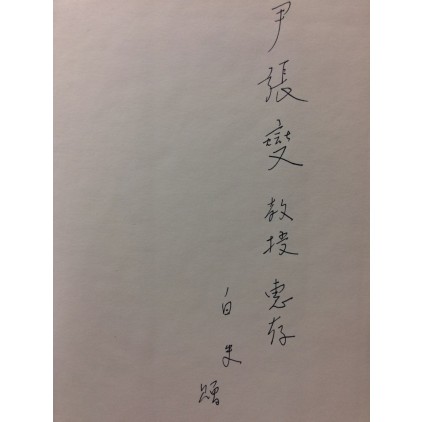 尹張燮 教授 惠存
白史 贈